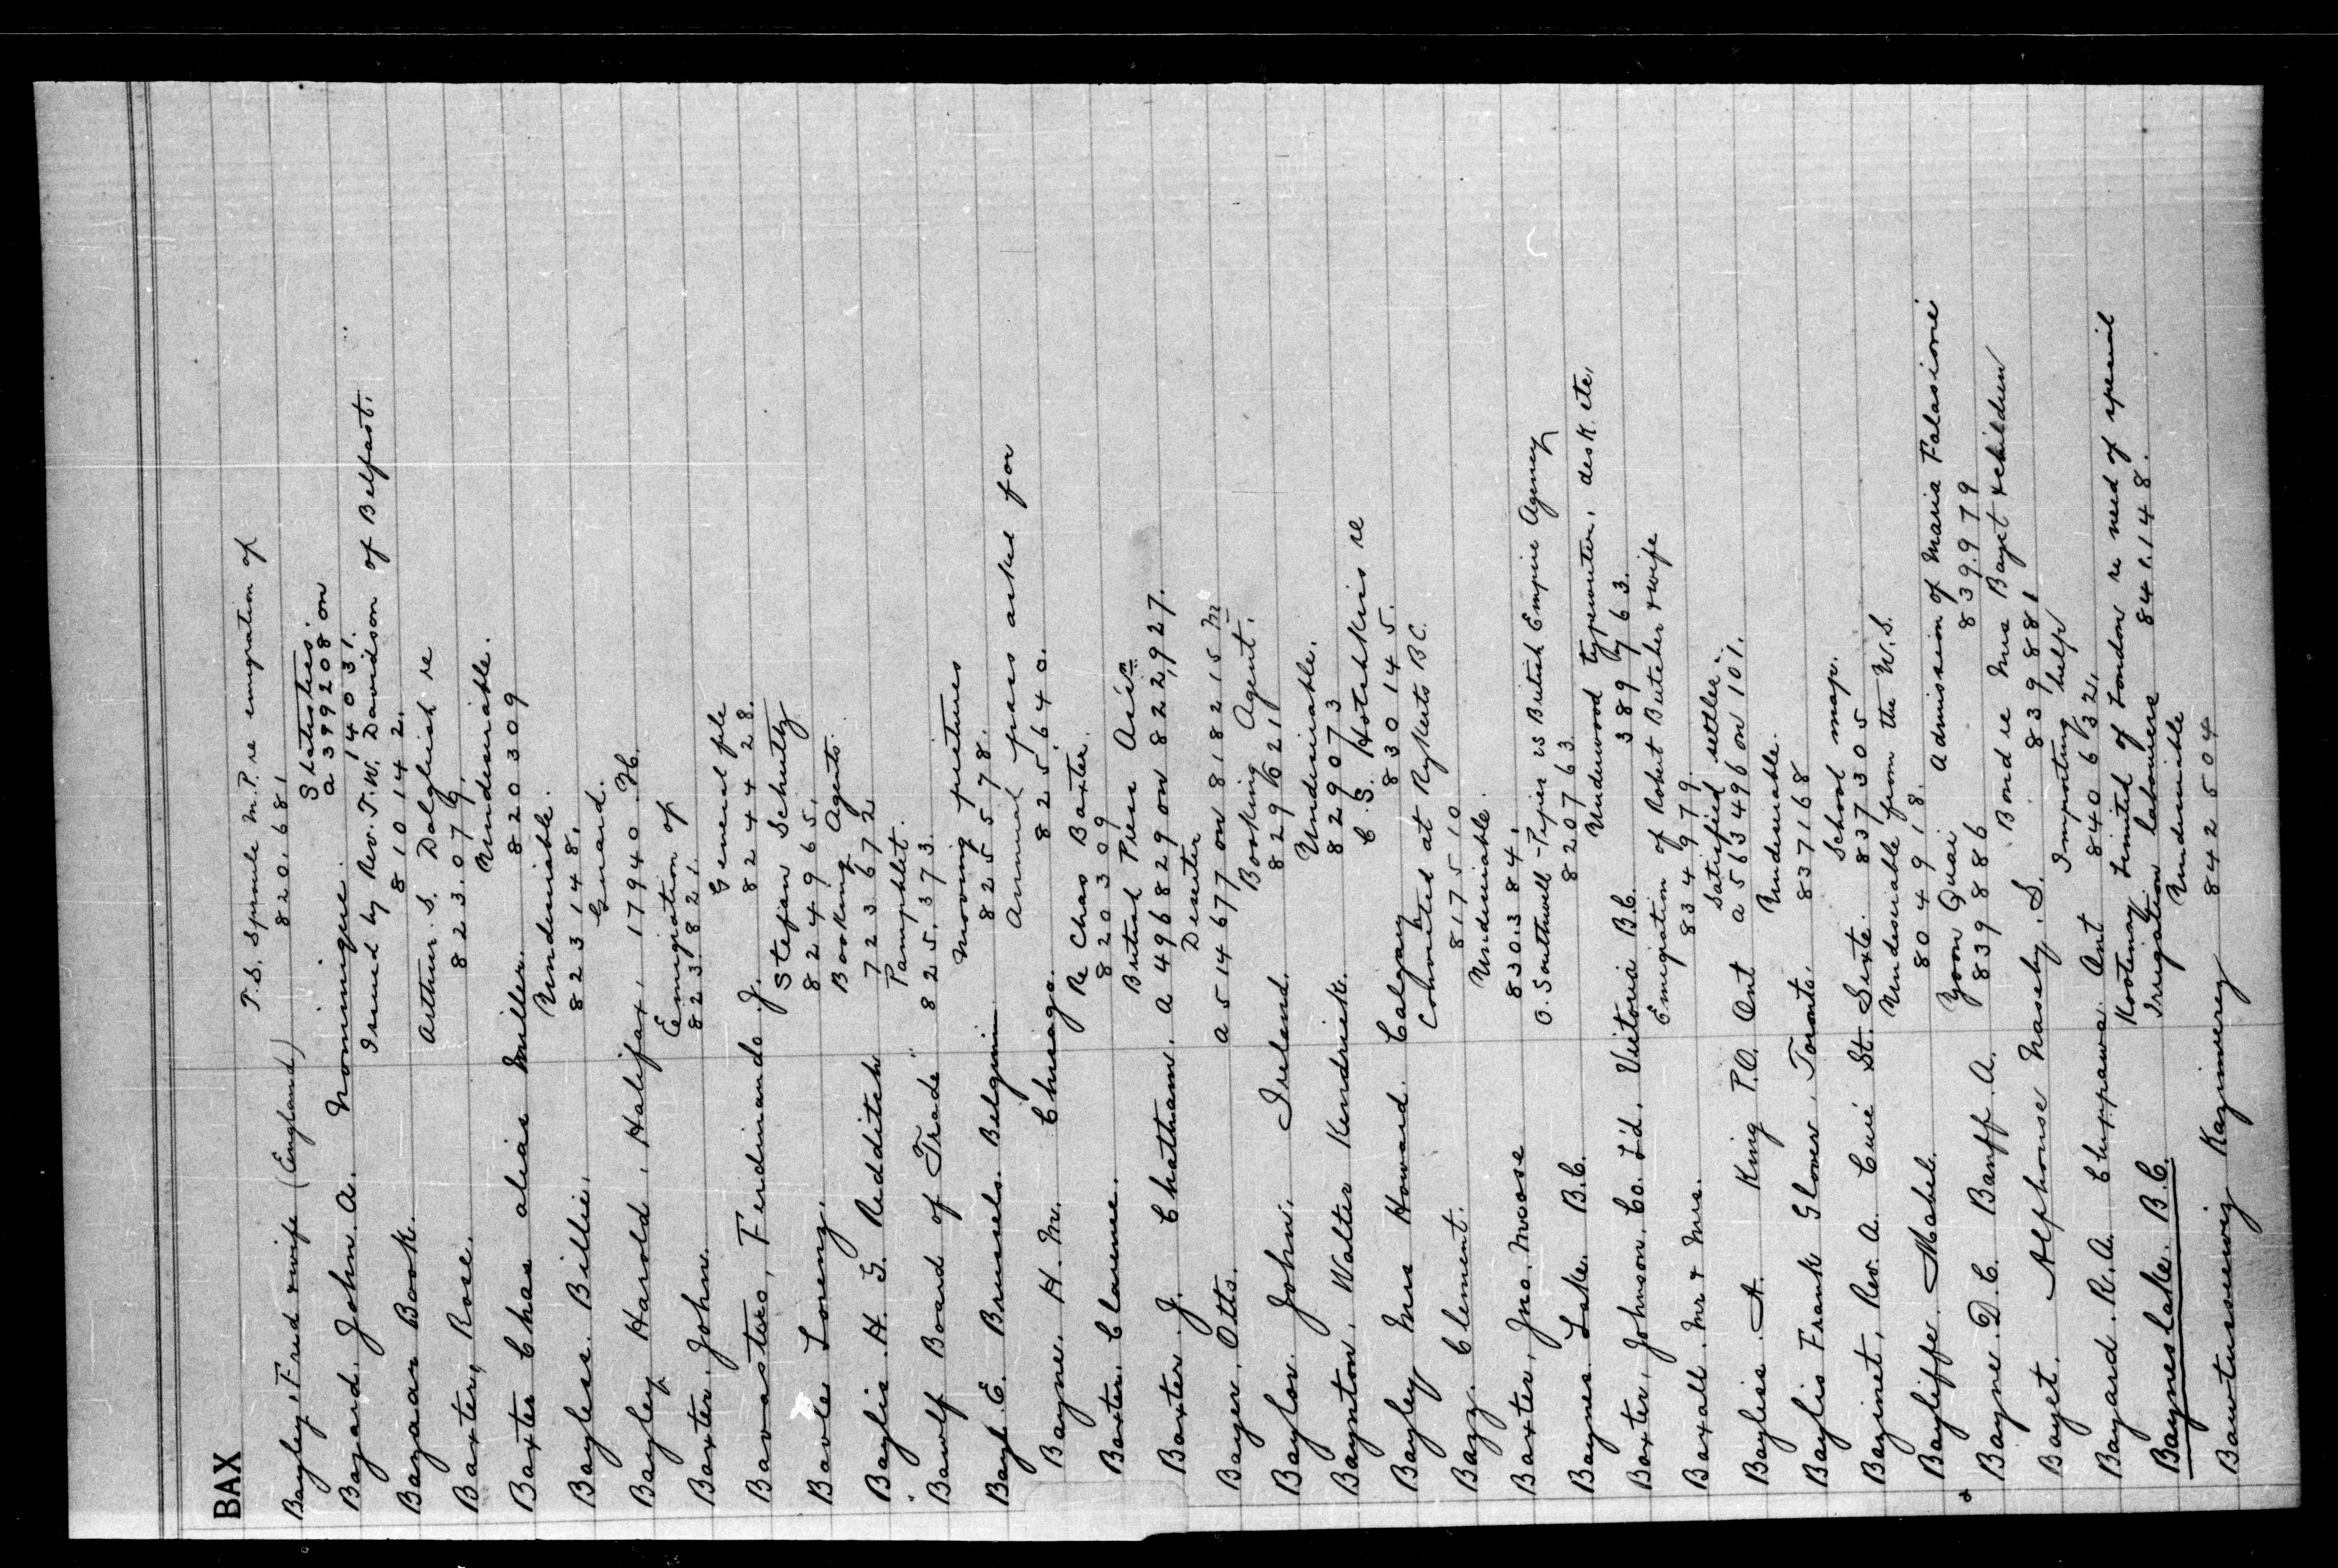 BAX
T.S. Sproule M.P. re emigration of
Bayley, Fred & wife (England) 820.681
Statistics.
a399208 on
Bazard. John. A. Nominique. 14031.
Issued by Rev. T.W. Davidson of Belfast.
Bazaar Book. 810142.
Arthur. S. Dalgliesh re
Baxter, Rose. 823.079.
Undesirable.
Baxter Chas alias Miller. 820309
Undesirable.
Bayless. Billie. 823148.
Guard.
Bayley, Harold, Halifax, 17940.H.
Emigration of
Baxter. John. 823.821.
General file
Bavastro, Ferdinando J. 824428.
Stefan Schultz
Bavole Lorenz. 824965.
Booking Agents.
Baylis. H. G. Redditch 723672
Pamphlet.
Bawlf Board of Trade" 825.373.
Moving pictures
Bayl. E. Brussels. Belgium. 825578.
Annual pass asked for
Bayne. H. M. Chicago. 825,640.
Re Chas Baxter.
Baxter. Clarence. 820309
British Peers Assn
Baxter. J. Chatham. a496829 on 822,927.
Deserter
Bayer. Otto. a514677 on 818215 M
Booking Agent.
Baylor. John. Ireland. 829621
Undesirable.
Baynton. Walter Kendrick. 829073
C. S. Hotchkiss re
Bayley Mrs Howard. Calgary 830145.
Convicted at Rykerts B.C.
Bazz. Clement. 817510
Undesirable.
Baxter, Jno. Moose 830.384.
O. Southwell-Pepier vs British Empire Agency
Baynes. Lake. B.C. 820763
Underwood typewriter, desk etc,
Baxter, Johnson. Co. L'd. Victoria B.C. 389763.
Emigration of Robert Butcher & wife
Baxall. Mr. & Mrs. 834979.
Satisfied settler.
Bayliss. A. King P.O. Ont a563496 on 101.
Undesirable.
Baylis Frank Glover, Toronto. 837168
School map.
Bazinet, Rev. A. Curé St. Sixte. 837305
Undesirable from the U.S.
Bayliffe. Mabel. 804918.
Yoon Quai Admission of Maria Falasione
Bayne. D. C. Banff. A. 839886 839.979
Bond re Mrs Bayet & children
Bayet. Alphonse Naseby. S. 839881
Importing help
Bayard. R. A. Chippawa. Ont 840632.
Kootenay Limited of London re need of special
Bayneslake. B.C. Irrigation labourers 841.148.
Undesirable
Kazimierez 842504